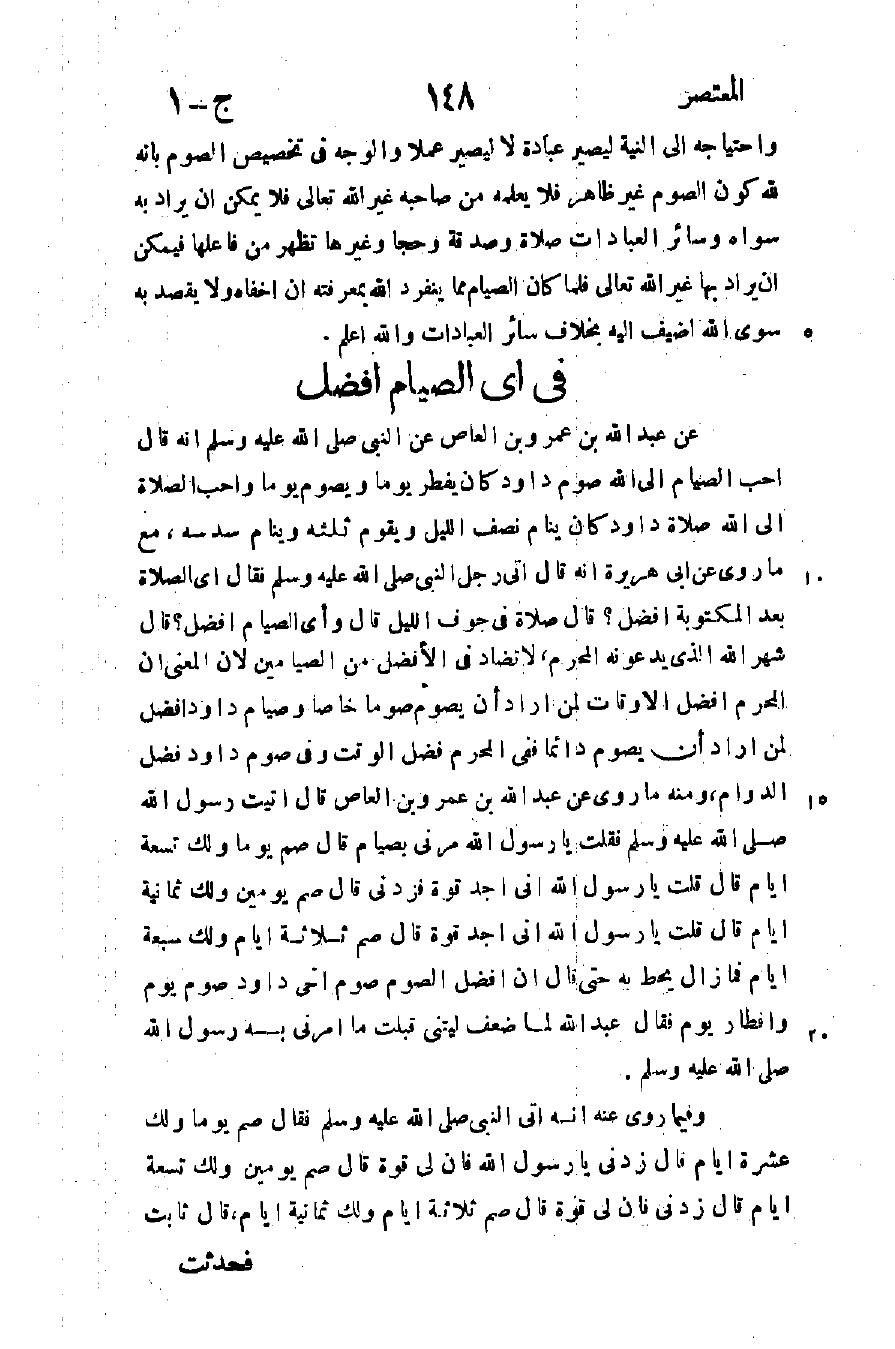 المعتصر ١٤٨ ج-١
واحتياجه الى النية ليصير عبادة لا ليصير عملا والوجه فى تخصيص الصوم بانه
لله كون الصوم غير ظاهر فلا يعلمه من صاحبه غير الله تعالى فلا يمكن ان يراد به
سواه وسائر العبادات صلاة وصدقة وحجا وغيرها تظهر من فاعلها فيمكن
ان يراد بها غير الله تعالى فلما كان الصيام مما ينفرد الله بمعرفته ان اخفاه ولا يقصد به
٥ سوى الله اضيف اليه بخلاف سائر العبادات والله اعلم .
فى اى الصيام افضل
عن عبد الله بن عمرو بن العاص عن النبى صلى الله عليه وسلم انه قال
احب الصيام الى الله صوم داود كان يفطر يوما ويصوم يوما واحب الصلاة
الى الله صلاة داود كان ينام نصف الليل ويقوم ثلثه وينام سدسه ، مع
١٠ ما روى عن ابى هريرة انه قال اتى رجل النبى صلى الله عليه وسلم فقال اى الصلاة
بعد المكتوبة افضل ؟ قال صلاة فى جوف الليل قال وأى الصيام افضل؟ قال
شهر الله الذى يدعونه المحرم، لا نضاد فى الأفضل من الصيامين لان المعنى ان
المحرم افضل الاوقات لمن اراد أن يصوم صوما خاصا وصيام داود افضل
لمن اراد أن يصوم دائما ففى المحرم فضل الوقت وفى صوم داود فضل
١٥ الدوام، ومنه ما روى عن عبد الله بن عمرو بن العاص قال اتيت رسول الله
صلى الله عليه وسلم فقلت يا رسول الله مرنى بصيام قال صم يوما ولك تسعة
ايام قال قلت يا رسول الله انى اجد قوة فزدنى قال صم يومين ولك ثمانية
ايام قال قلت يا رسول الله انى اجد قوة قال صم ثلاثة ايام ولك سبعة
ايام فما زال يحط به حتى قال ان افضل الصوم صوم اخى داود صوم يوم
٢٠ وافطار يوم فقال عبد الله لما ضعف ليتنى قبلت ما امرنى به رسول الله
صلى الله عليه وسلم .
وفيما روى عنه انه اتى النبى صلى الله عليه وسلم فقال صم يوما ولك
عشرة ايام قال زدنى يا رسول الله فان لى قوة قال صم يومين ولك تسعة
ايام قال زدنى فان لى قوة قال صم ثلاثة ايام ولك ثمانية ايام، قال ثابت
فحدثت